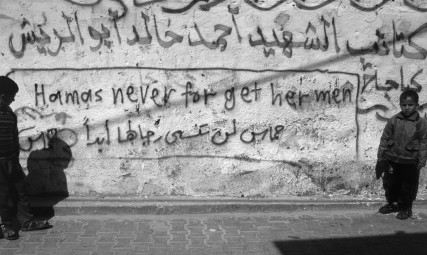 كتائب الشهيد أحمد خالد أبو الريش
Hamas never for get her men
حماس لن تنسى رجالها أبداً
حماس